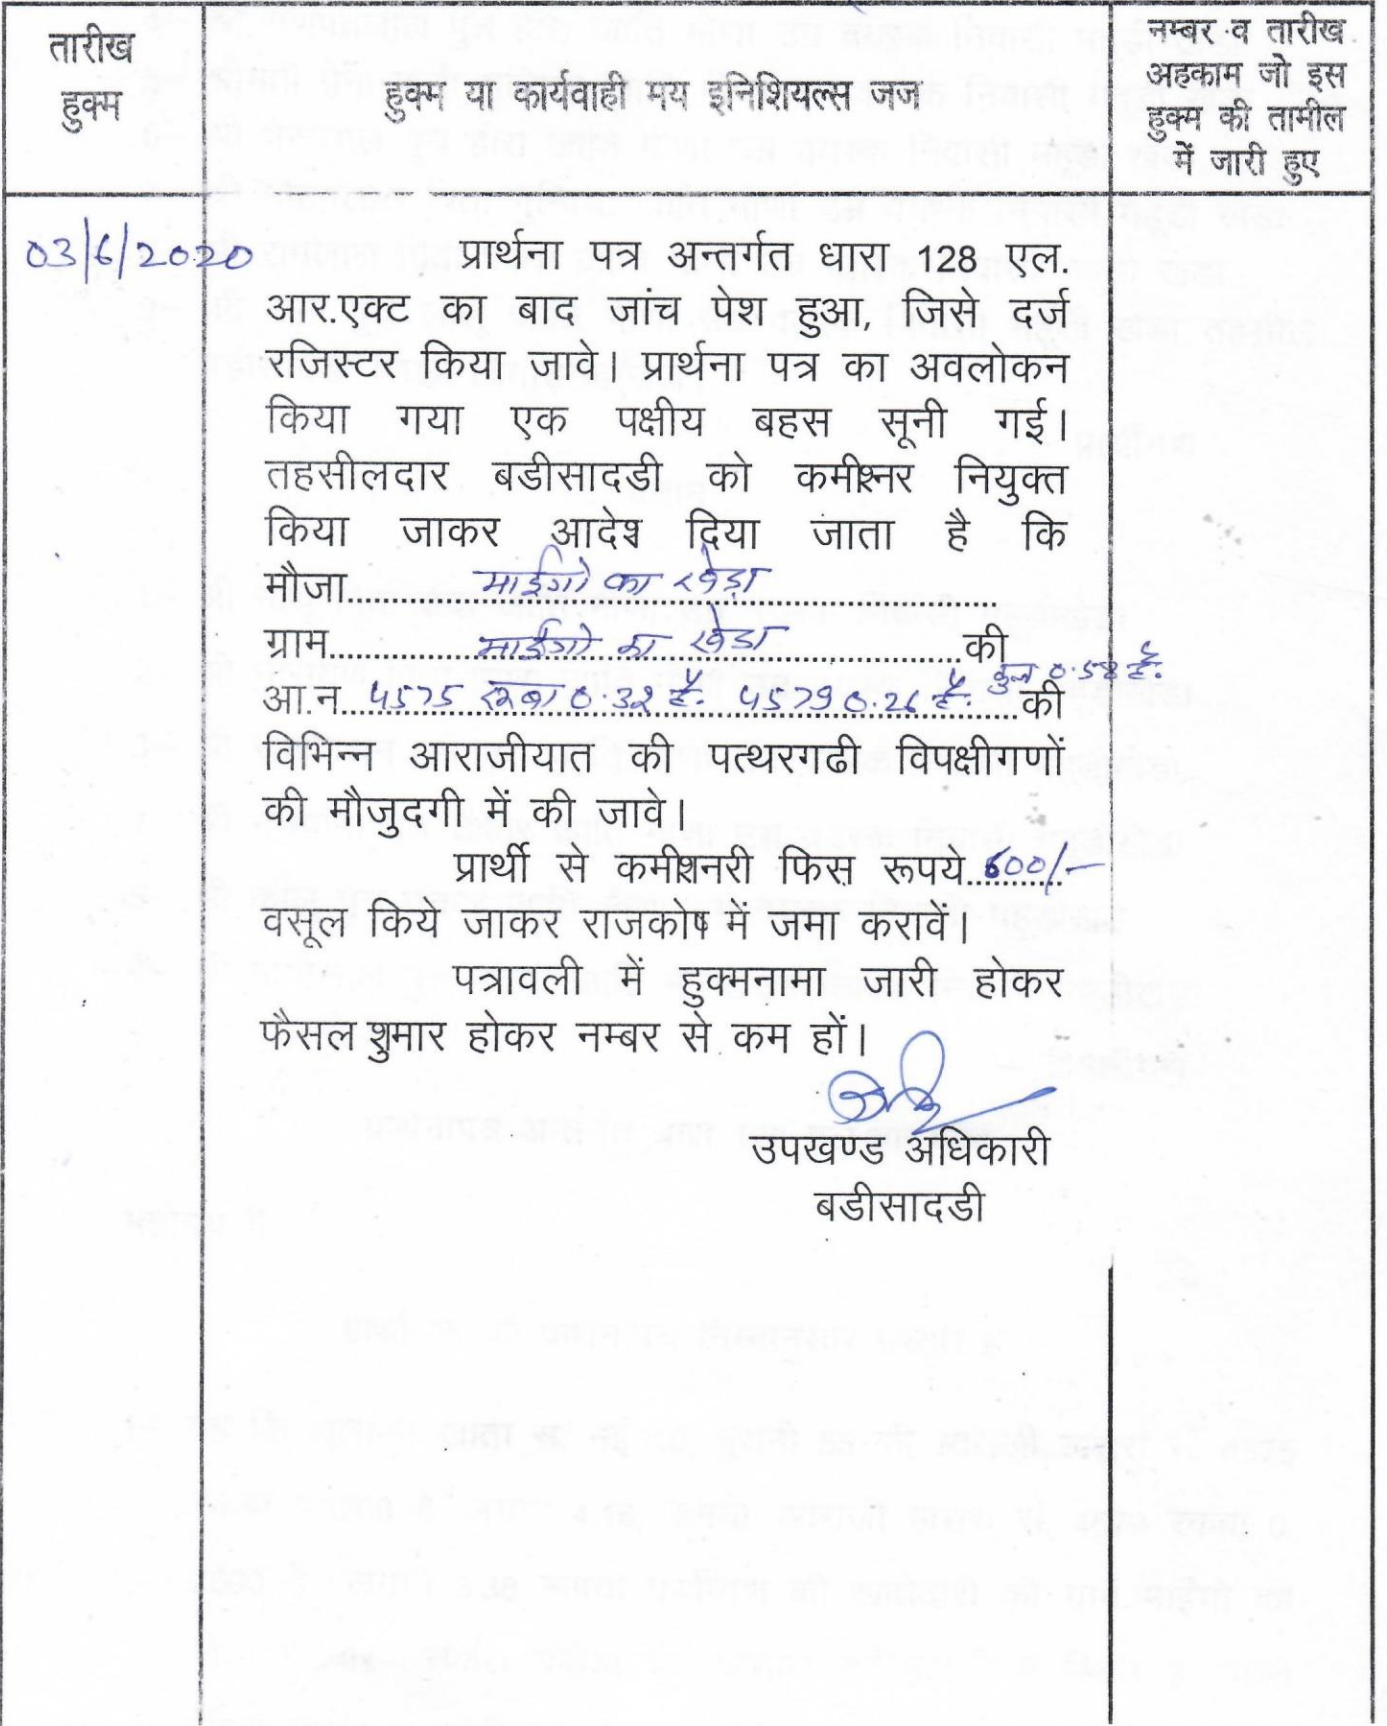 तारीख
हुक्म
हुक्म या कार्यवाही मय इनिशियल्स जज
नम्बर व तारीख
अहकाम जो इस
हुक्म की तामील
में जारी हुए
03/6/2020
प्रार्थना पत्र अन्तर्गत धारा 128 एल.
आर.एक्ट का बाद जांच पेश हुआ, जिसे दर्ज
रजिस्टर किया जावे। प्रार्थना पत्र का अवलोकन
किया गया एक पक्षीय बहस सूनी गई।
तहसीलदार बडीसादडी को कमीश्नर नियुक्त
किया जाकर आदेश दिया जाता है कि
मौजा......माईगो का खेड़ा......
ग्राम......माईगो का खेडा......की
कुल 0.58 है.
आ.न......4575 रकबा 0.32 है. 4579 0.26 है.......की
विभिन्न आराजीयात की पत्थरगढी विपक्षीगणों
की मौजुदगी में की जावे।
प्रार्थी से कमीशनरी फिस रूपये......600/-
वसूल किये जाकर राजकोष में जमा करावें।
पत्रावली में हुक्मनामा जारी होकर
फैसल शुमार होकर नम्बर से कम हों।
उपखण्ड अधिकारी
बडीसादडी